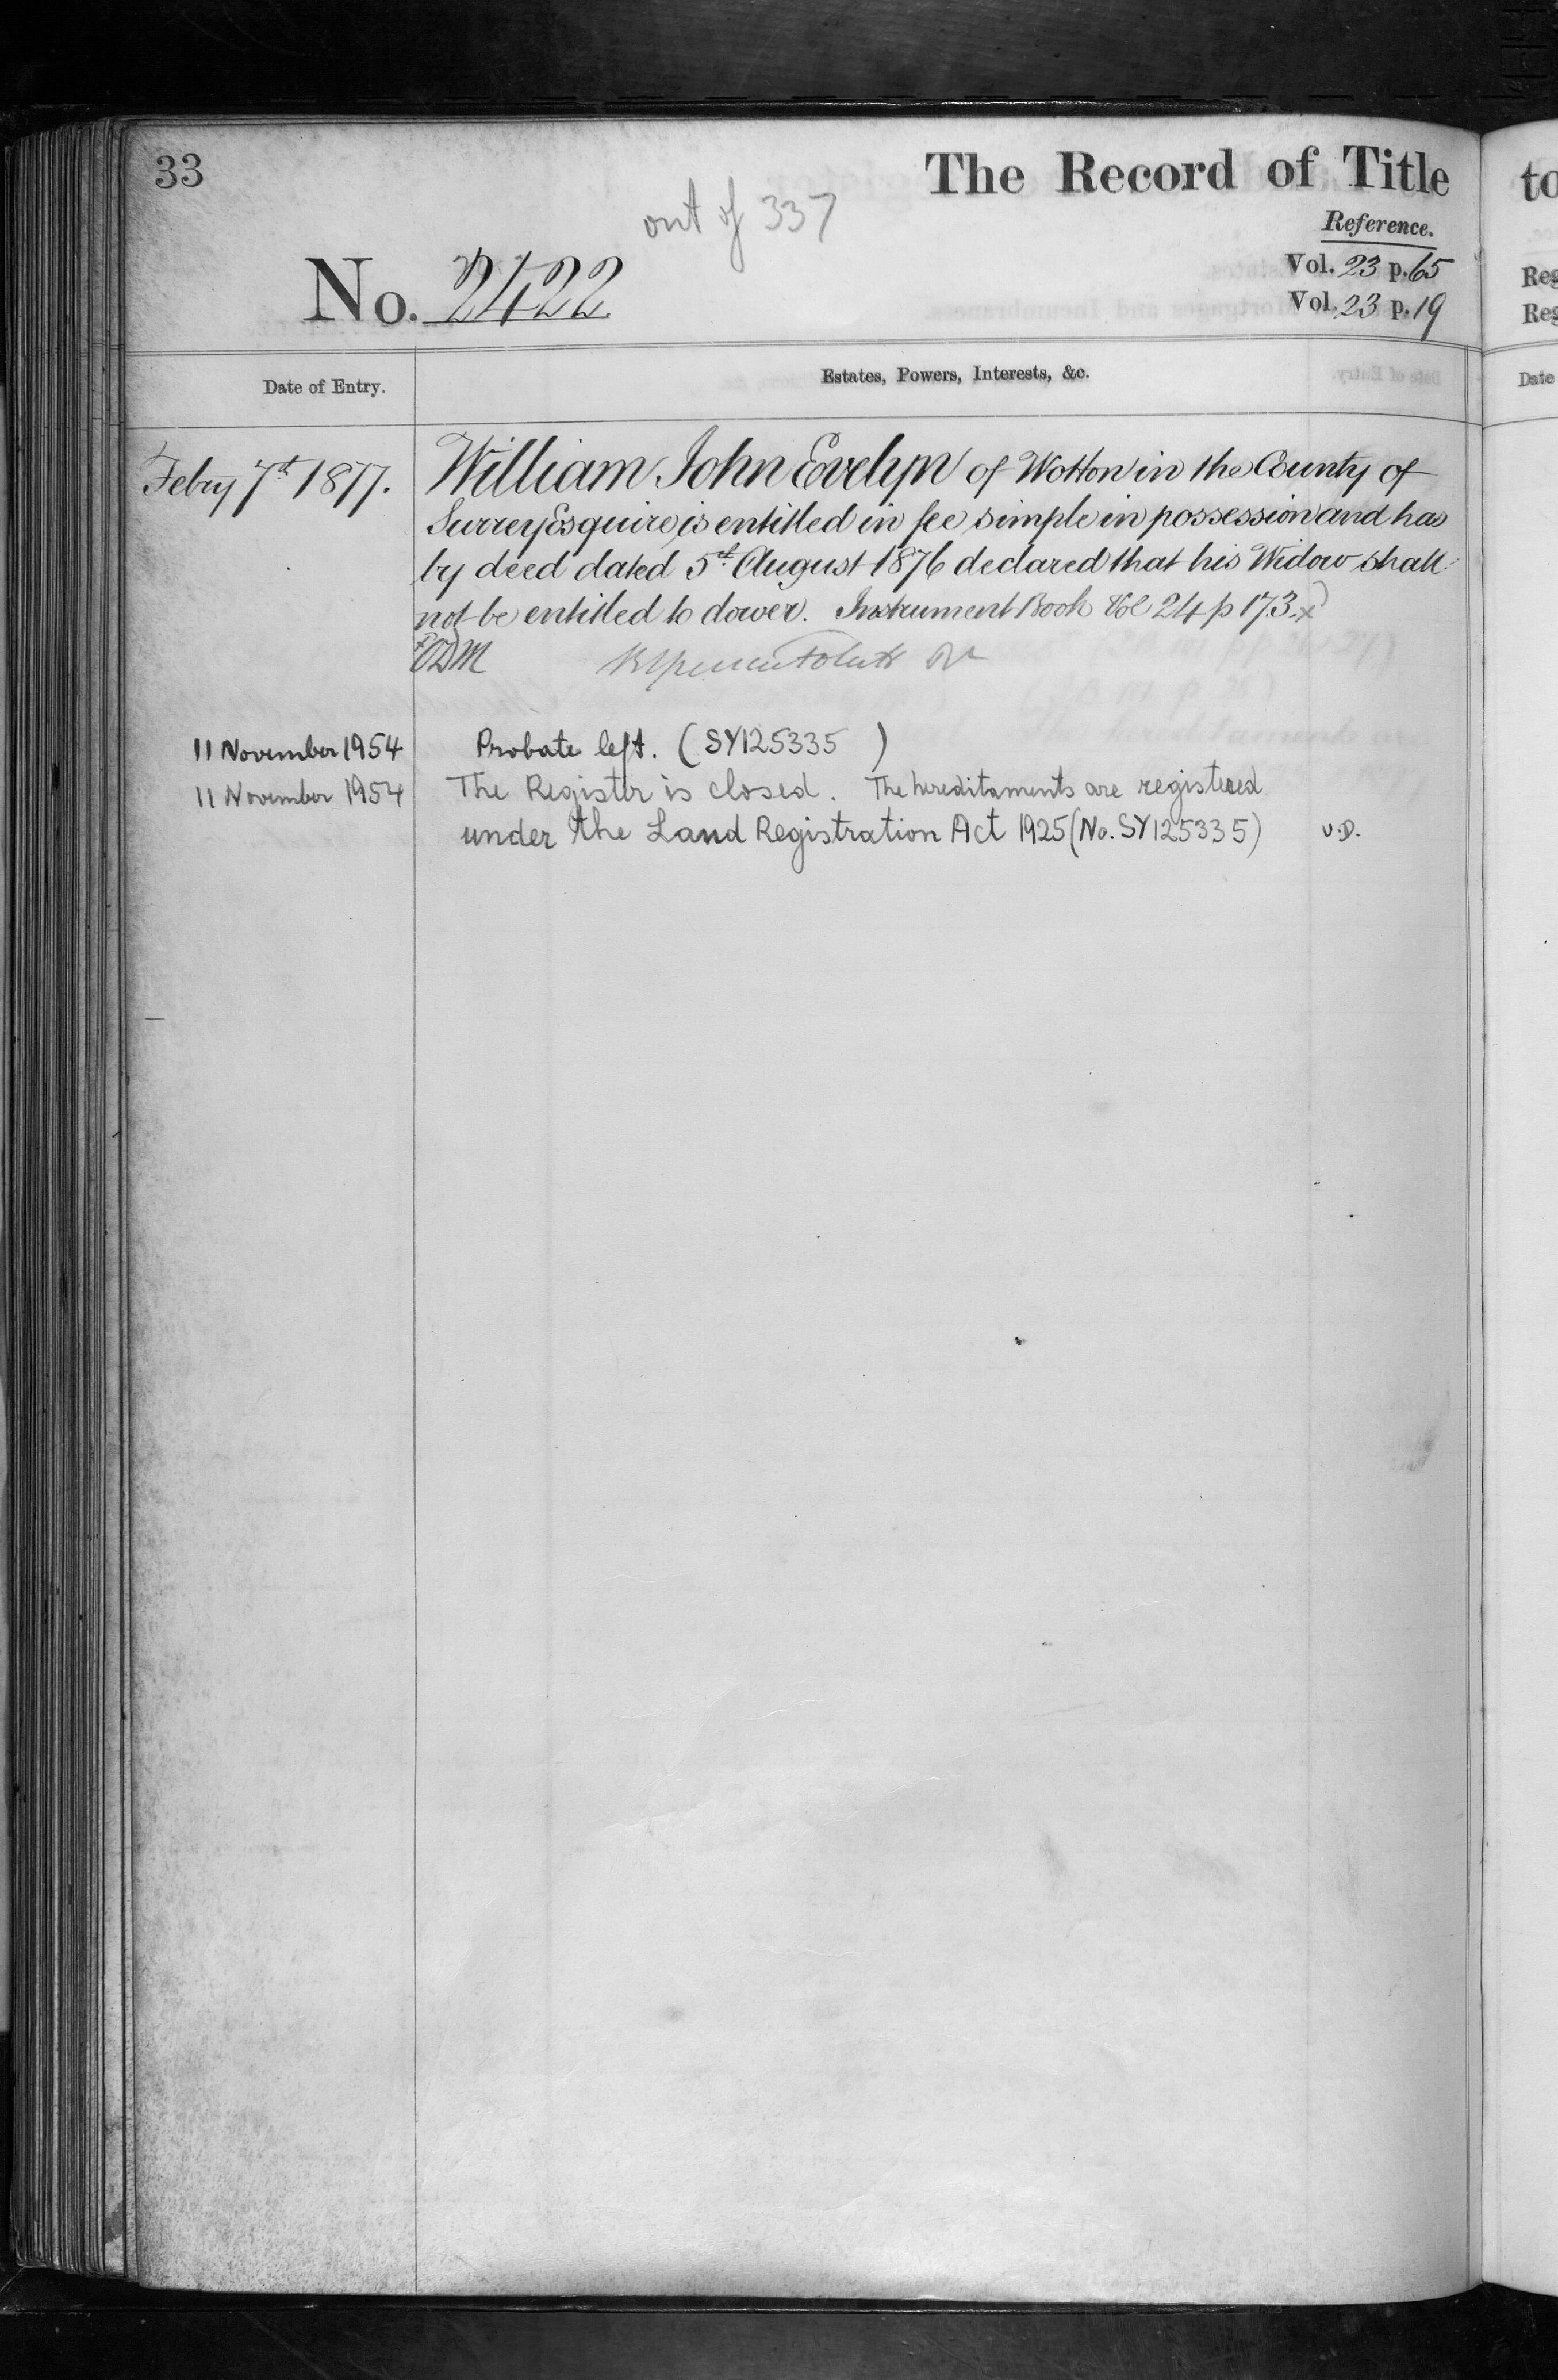 33
The Record of Title
out of 337
Reference.
No. 2422
Vol. 23 p. 65
Vol. 23 p. 19
Date of Entry.
Estates, Powers, Interests, &c.
Febry 7th 1877.
William John Evelyn of Wotton in the County of
Surrey Esquire is entitled in fee simple in possession and has
by deed dated 5th August 1876 declared that his Widow shall
not be entitled to dower. Instrument Book Vol 24 p 173. x)
11 November 1954 Probate left. (SY125335 )
11 November 1954 The Register is closed. The hereditaments are registered
under the Land Registration Act 1925 (No. SY125335) V.D.
to
Reg
Reg
Date